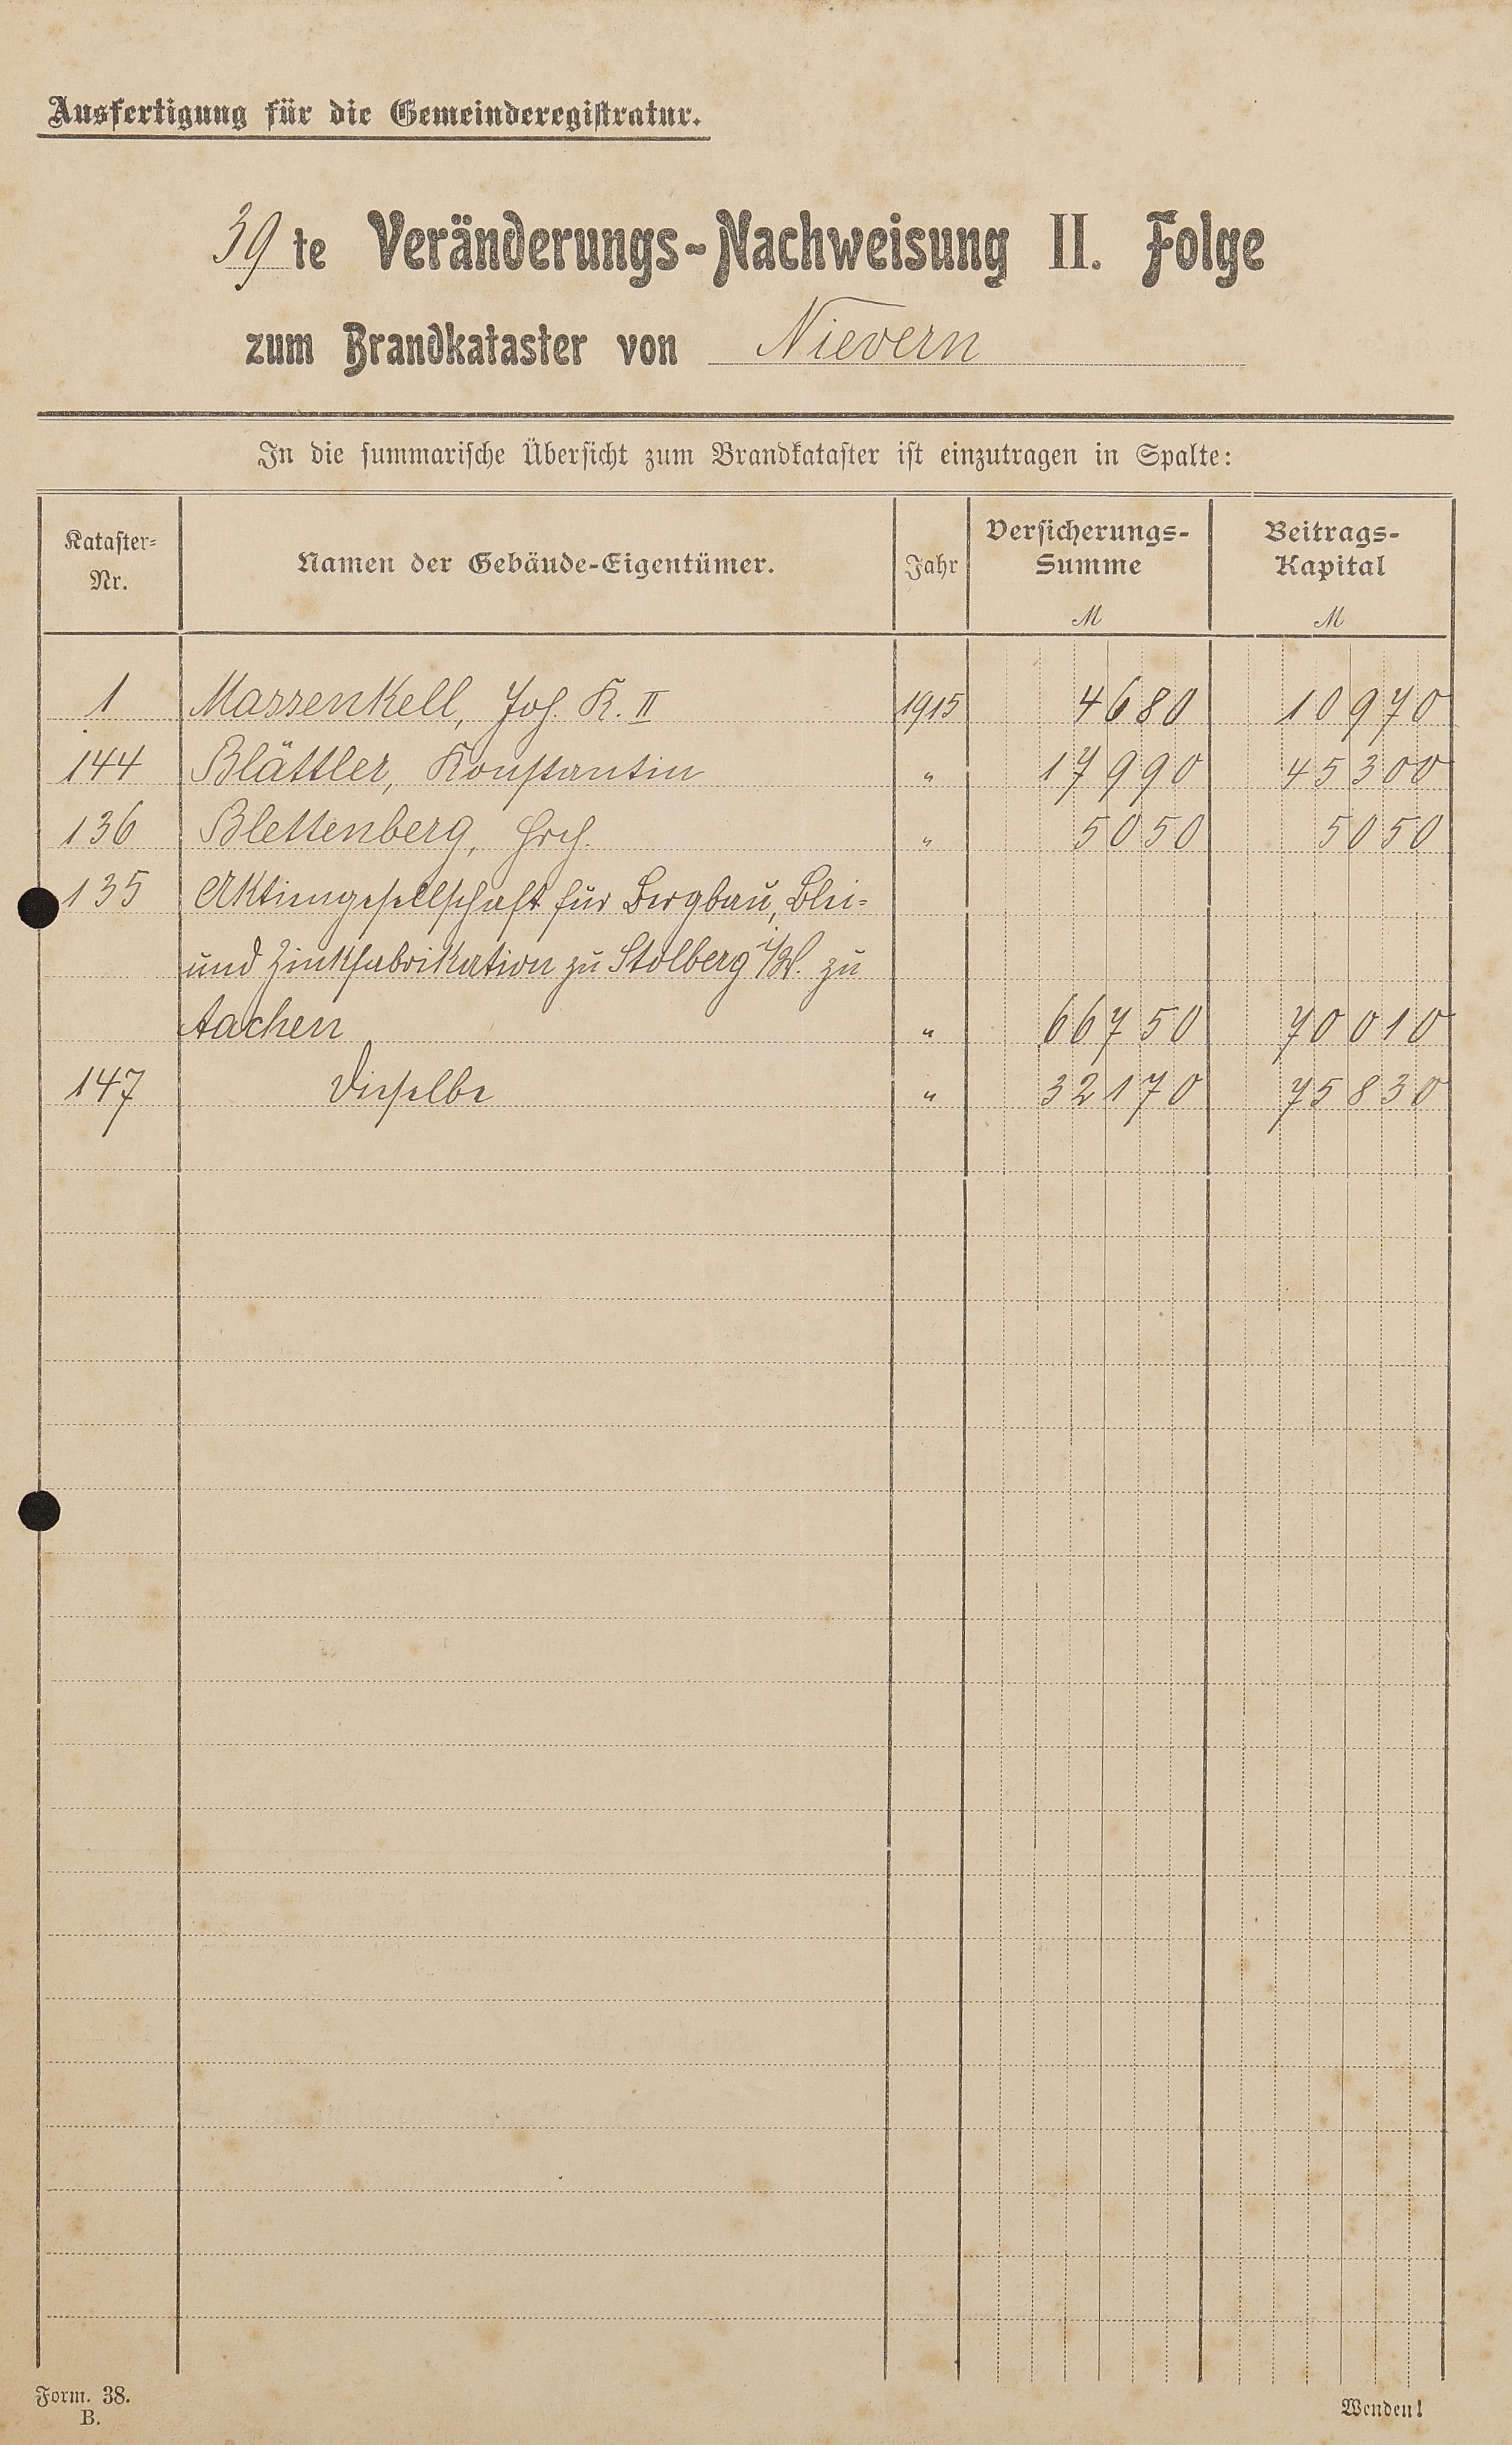 Ausfertigung für die Gemeinderegistratur.
39 te Veränderungs-Nachweisung II. Folge
zum Brandkataster von Nievern
In die summarische Übersicht zum Brandkataster ist einzutragen in Spalte:
Kataster-Nr. Namen der Gebäude-Eigentümer. Jahr Versicherungs-Summe M Beitrags-Kapital M
1 Massenkell, Jos. K. II 1915 4680 10970
144 Blättler, Konstantin " 17990 45300
136 Blettenberg, " 5050 5050
135 Aktiengesellschaft für Bergbau, Blei-
und Zinkfabrikation zu Stolberg zu
Aachen " 66750 70010
147 Dieselbe " 32170 75830
Form. 38.
B.
Wenden!